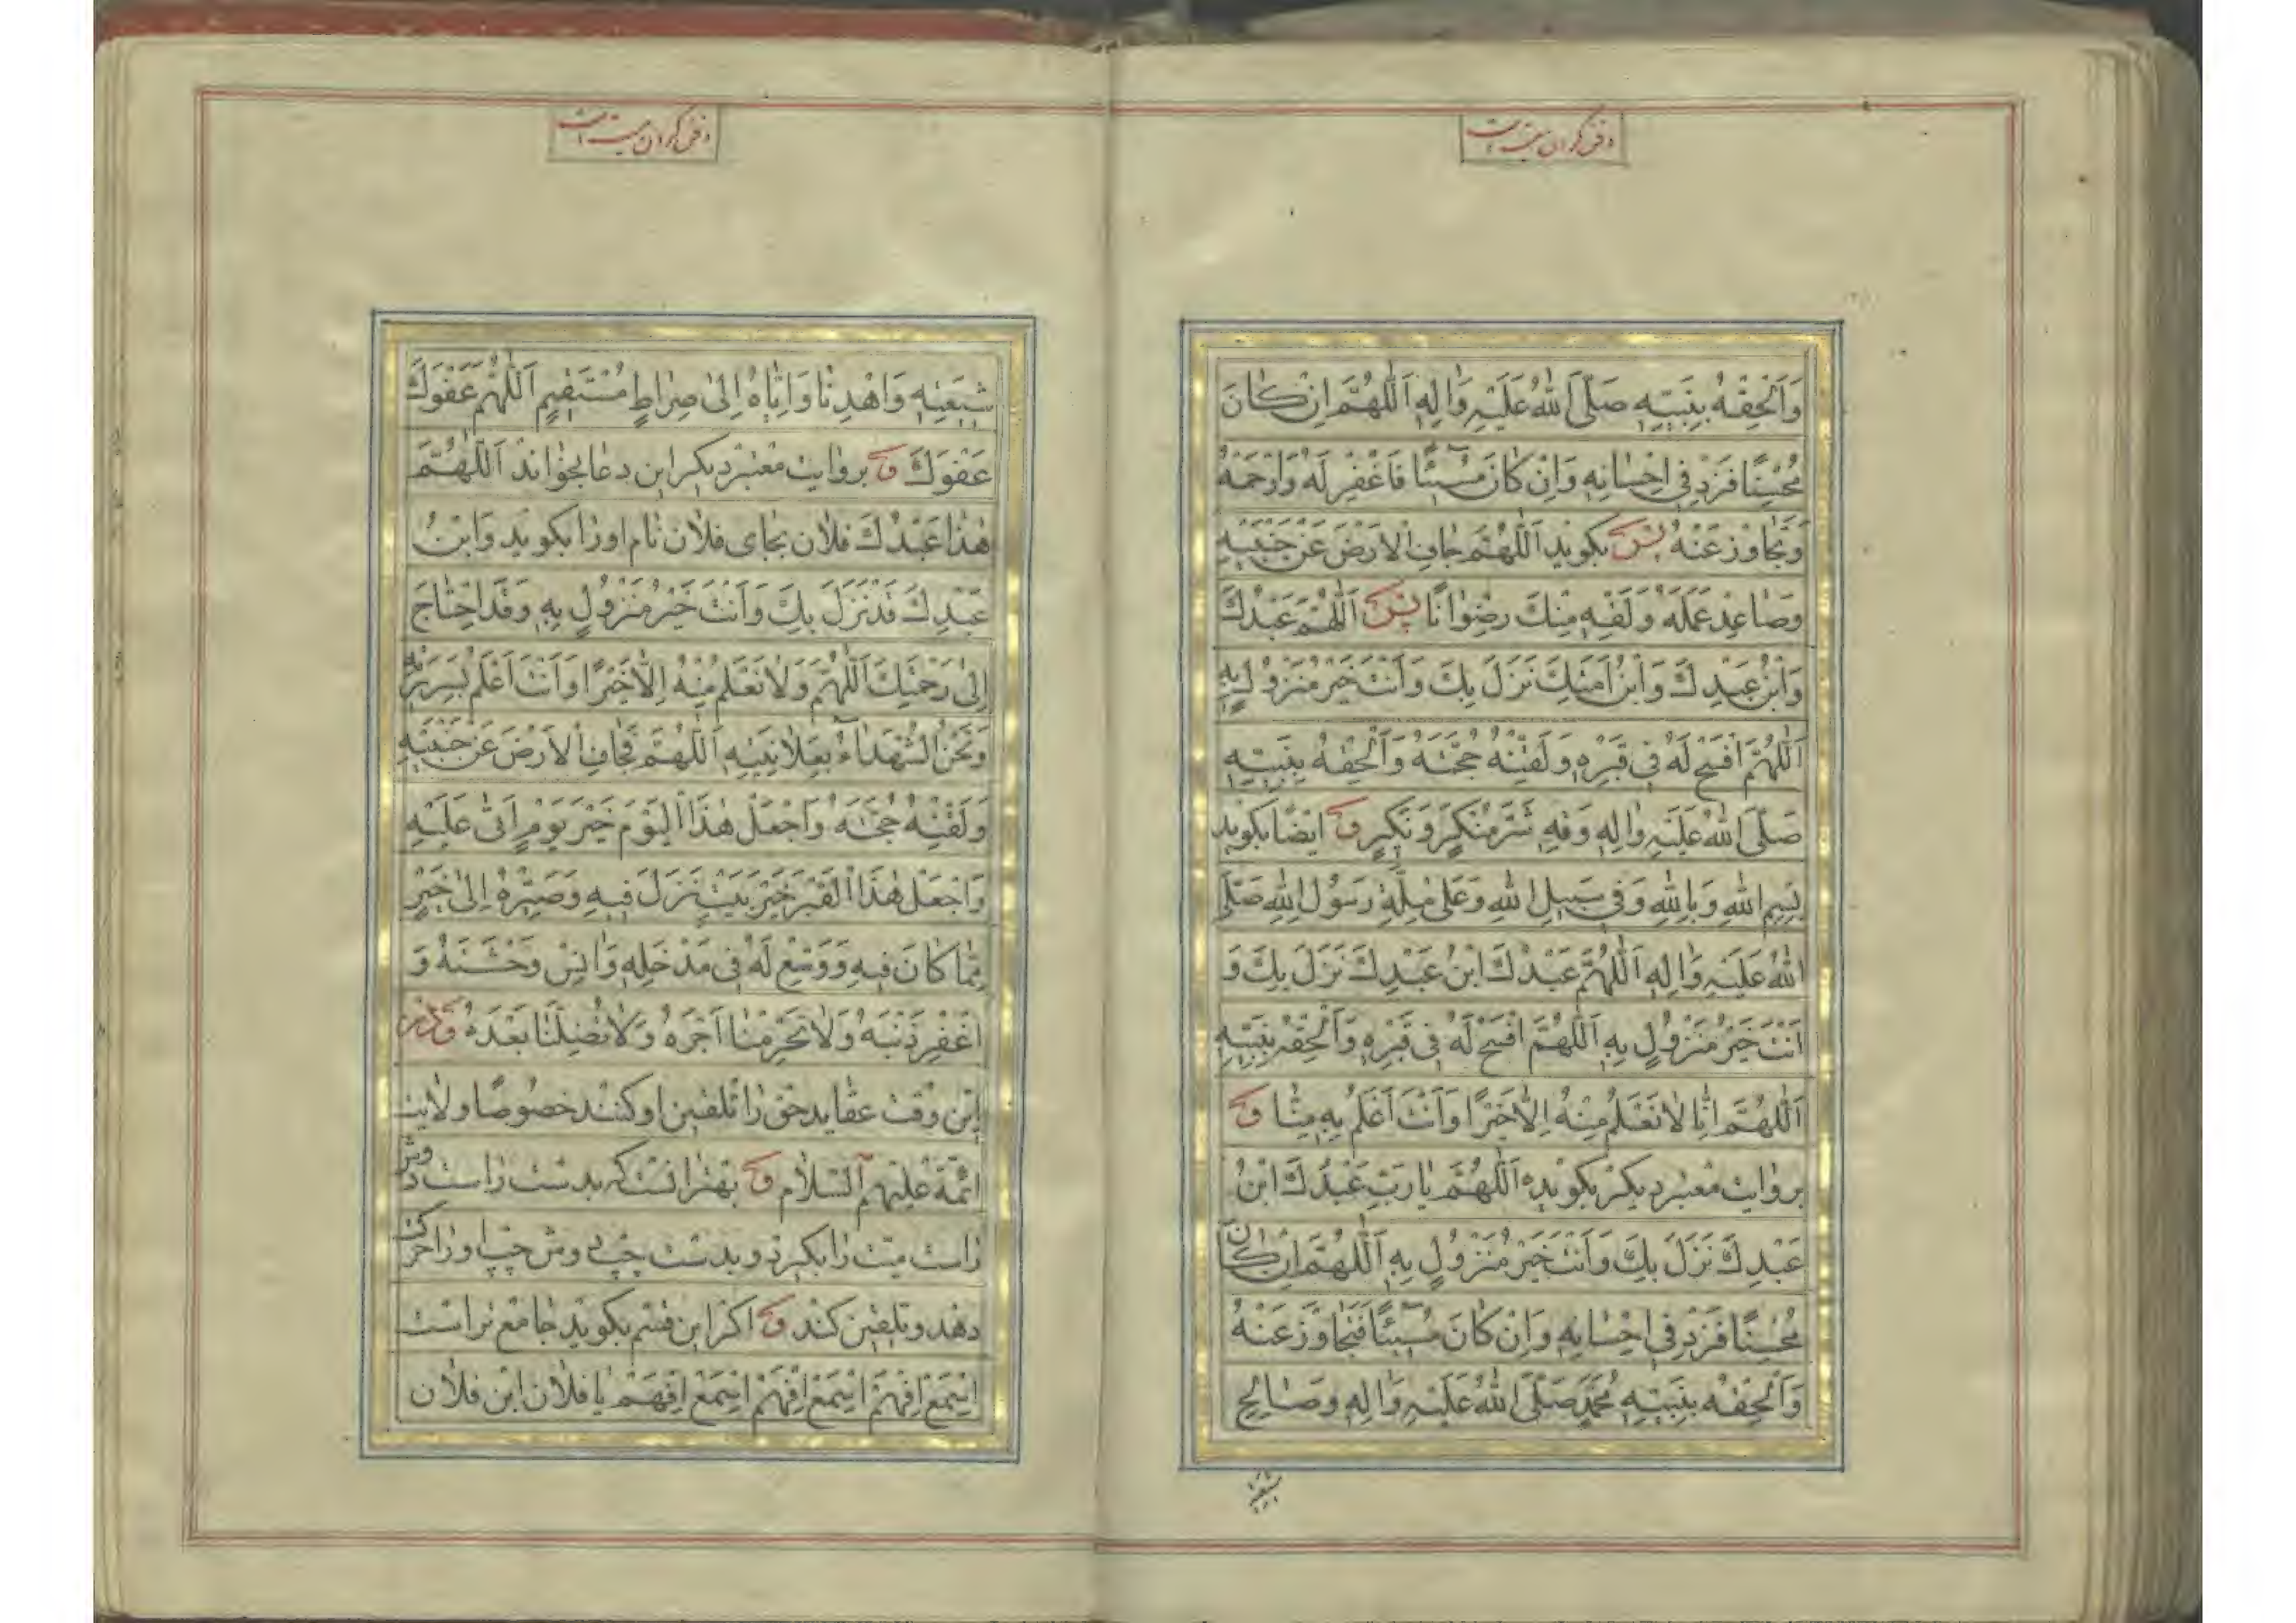 دفن کردن میت است
وَاَلْحِقْهُ بِنَبِیِّهِ صَلَّی اللهُ عَلَیْهِ وَاٰلِهِ اَللّٰهُمَّ اِنْ کٰانَ
مُحْسِنًا فَزِدْ فِی اِحْسٰانِهِ وَاِنْ کٰانَ مُسٖیٓئًا فَاغْفِرْ لَهُ وَارْحَمْهُ
وَتَجٰاوَزْ عَنْهُ پس بکوید اَللّٰهُمَّ جٰافِ الْاَرْضَ عَنْ جَنْبَیْهِ
وَصٰاعِدْ عَمَلَهُ وَلَقِّهِ مِنْکَ رِضْوٰانًا پس اَللّٰهُمَّ عَبْدُکَ
وَابْنُ عَبْدِکَ وَابْنُ اَمَتِکَ نَزَلَ بِکَ وَاَنْتَ خَیْرُ مَنْزُولٍ بِهِ
اَللّٰهُمَّ افْسَحْ لَهُ فِی قَبْرِهِ وَلَقِّنْهُ حُجَّتَهُ وَاَلْحِقْهُ بِنَبِیِّهِ
صَلَّی اللهُ عَلَیْهِ وَاٰلِهِ وَقِهِ شَرَّ مُنْکَرٍ وَنَکِیرٍ و ایضًا بکوید
بِسْمِ اللهِ وَبِاللهِ وَفِی سَبِیلِ اللهِ وَعَلیٰ مِلَّةِ رَسُولِ اللهِ صَلَّی
اللهُ عَلَیْهِ وَاٰلِهِ اَللّٰهُمَّ عَبْدُکَ ابْنُ عَبْدِکَ نَزَلَ بِکَ وَ
اَنْتَ خَیْرُ مَنْزُولٍ بِهِ اَللّٰهُمَّ افْسَحْ لَهُ فِی قَبْرِهِ وَاَلْحِقْهُ بِنَبِیِّهِ
اَللّٰهُمَّ اِنّٰا لٰا نَعْلَمُ مِنْهُ اِلّٰا خَیْرًا وَاَنْتَ اَعْلَمُ بِهِ مِنّٰا و
بروایت معتبر دیکر بکوید اَللّٰهُمَّ یٰا رَبِّ عَبْدُکَ ابْنُ
عَبْدِکَ نَزَلَ بِکَ وَاَنْتَ خَیْرُ مَنْزُولٍ بِهِ اَللّٰهُمَّ اِنْ کٰانَ
مُحْسِنًا فَزِدْ فِی اِحْسٰانِهِ وَاِنْ کٰانَ مُسٖیٓئًا فَتَجٰاوَزْ عَنْهُ
وَاَلْحِقْهُ بِنَبِیِّهِ مُحَمَّدٍ صَلَّی اللهُ عَلَیْهِ وَاٰلِهِ وَصٰالِحِ
شیعته
دفن کردن میت است
شِیعَتِهِ وَاهْدِنٰا وَاِیّٰاهُ اِلیٰ صِرٰاطٍ مُسْتَقِیمٍ اَللّٰهُمَّ عَفْوَکَ
عَفْوَکَ و بروایت معتبر دیکر این دعا بخواند اَللّٰهُمَّ
هٰذٰا عَبْدُکَ فلان بجای فلان نام او را بکوید وَابْنُ
عَبْدِکَ قَدْ نَزَلَ بِکَ وَاَنْتَ خَیْرُ مَنْزُولٍ بِهِ وَقَدِ احْتٰاجَ
اِلیٰ رَحْمَتِکَ اَللّٰهُمَّ وَلٰا نَعْلَمُ مِنْهُ اِلّٰا خَیْرًا وَاَنْتَ اَعْلَمُ بِسَرِیرَتِهِ
وَنَحْنُ الشُّهَدٰاءُ بِعَلٰانِیَتِهِ اَللّٰهُمَّ فَجٰافِ الْاَرْضَ عَنْ جَنْبَیْهِ
وَلَقِّنْهُ حُجَّتَهُ وَاجْعَلْ هٰذَا الْیَوْمَ خَیْرَ یَوْمٍ اَتیٰ عَلَیْهِ
وَاجْعَلْ هٰذَا الْقَبْرَ خَیْرَ بَیْتٍ نَزَلَ فِیهِ وَصَیِّرْهُ اِلیٰ خَیْرٍ
مِمّٰا کٰانَ فِیهِ وَوَسِّعْ لَهُ فِی مَدْخَلِهِ وَاٰنِسْ وَحْشَتَهُ وَ
اغْفِرْ ذَنْبَهُ وَلٰا تَحْرِمْنٰا اَجْرَهُ وَلٰا تُضِلَّنٰا بَعْدَهُ و در
این وقت عقاید حق را تلقین او کنند خصوصًا ولایت
ائمّه عَلَیْهِمُ السَّلٰام و بهتر انست که بدست راست دوش
راست میّت را بکیرد و بدست چپ دوش چپ او را حرکت
دهد و تلقین کند و اکر این قسم بکوید جامع تر است
اِسْمَعْ اِفْهَمْ اِسْمَعْ اِفْهَمْ اِسْمَعْ اِفْهَمْ یٰا فلان ابن فلان